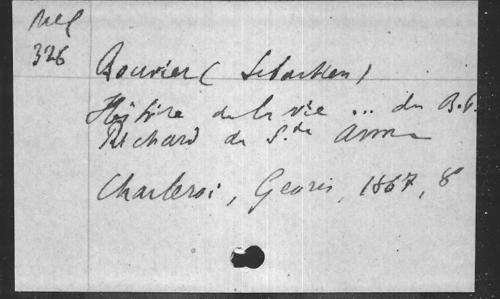 Mel
326
Bouvier (Sébastien)
Histoire de la vie ... du B.P.
Richard de Ste Anne
Charleroi, Georis, 1867, 8°